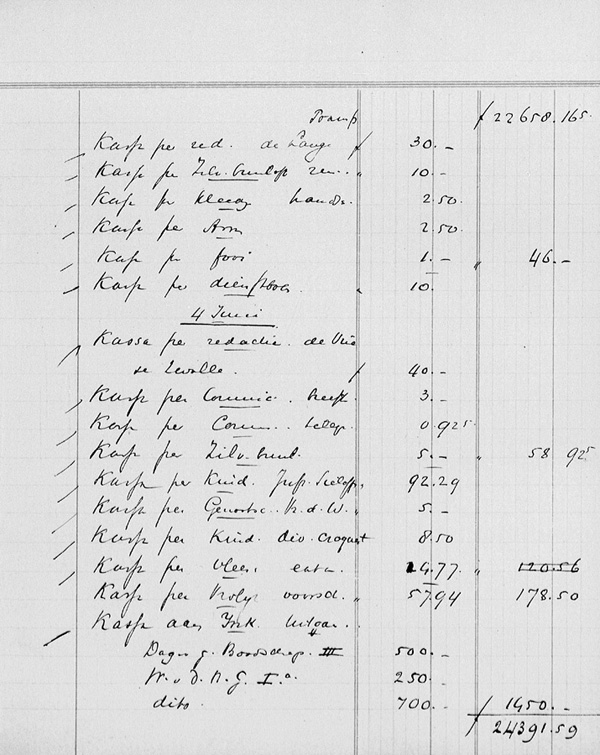 Transp ƒ 22658.165
Kassa per red. de Lange ƒ 30.-
Kassa per Zilv. bruiloft " 10.-
Kassa per kleeding 2.50
Kassa per Arm 2.50
Kassa per fooi 1.- " 46.-
Kassa per dienstbod. " 10.-
4 Juni
Kassa per redactie. de Vrie
se Zwolle. ƒ 40.-
Kassa per Commis. 3.-
Kassa per Comm. telegr. 0.925
Kassa per Zilv. bruil. 5.- " 58 925
Kassa per Kind. 92.29
Kassa per Genootsc. K.d.W. " 5.-
Kassa per Kind. div. croquet 8.50
Kassa per Vlees extra. 14.77. " 120.56
Kassa per Kolyn voorsch. " 57.94 178.50
Kassa aan Ink.
Dagn g. Boodschap. III 500.-
W. v. D. N. G. I.a 250.-
dito. 700.- 1450.-
ƒ 24391.59